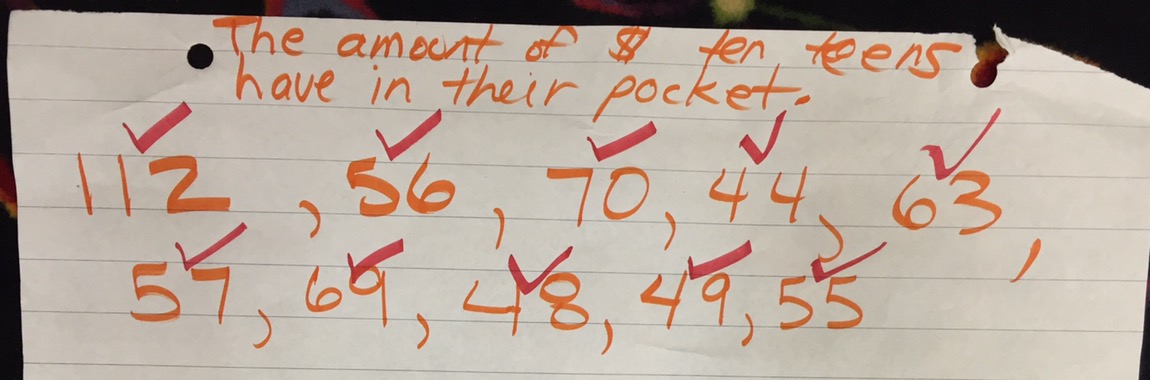 The amount of $ ten teens
have in their pocket.
112, 56, 70, 44, 63,
57, 69, 48, 49, 55